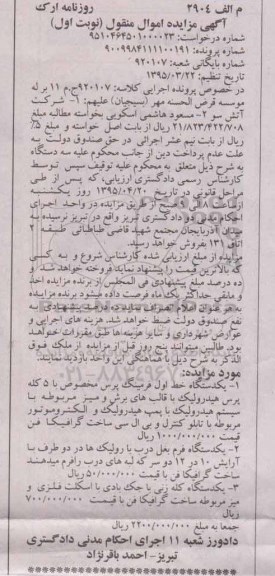 م الف ۲۹۰۴ روزنامه ارک
آگهی مزایده اموال منقول (نوبت اول)
شماره درخواست: ۹۵۱۰۴۶۴۵۰۱۰۰۰۰۳۳
شماره پرونده: ۹۰۰۹۹۸۴۱۱۱۱۰۰۱۹۱
شماره بایگانی شعبه: ۹۲۰۱۰۷
تاریخ تنظیم: ۱۳۹۵/۰۳/۲۲
در خصوص پرونده اجرایی کلاسه: ۹۲۰۱۰۷ج.م ۱۱ بر له
موسسه قرض الحسنه مهر (بسیجیان) علیهم: ۱- شرکت
آتش سو ۲- مسعود هاشمی اسکویی بخواسته مطالبه مبلغ
۲۱/۸۲۳/۴۲۲/۷۰۸ ریال از بابت اصل خواسته و مبلغ ۵٪
ریال از بابت نیم عشر اجرائی در حق صندوق دولت به
علت عدم پرداخت دین از جانب محکوم علیه مه دستگاه
به شرح ذیل متعلق به محکوم علیه توقیف سپس توسط
کارشناس رسمی دادگستری ارزیابی، که پس از طی
مراحل قانونی در تاریخ ۱۳۹۵/۰۴/۲۰ روز یکشنبه
از ساعت ۸ الی ۹ صبح از طریق مزایده در واحد اجرای
احکام مدنی دادگستری تبریز واقع در تبریز نرسیده به
میدان آذربایجان مجتمع شهید قاضی طباطبائی طبقه ۲
اتاق ۱۳۱ بفروش خواهد رسید.
مزایده از مبلغ ارزیابی شده کارشناس شروع و به کسی
که بالاترین قیمت را پیشنهاد نماید فروخته خواهد شد و
ده درصد مبلغ پیشنهادی فی المجلس از برنده مزایده اخذ
و مابقی حداکثر یک ماه فرصت داده میشود برنده مزایده
به هر عنوان اعلام انصراف نماید ده درصد پیشنهادی به
نفع صندوق دولت ضبط خواهد شد. هزینه های اجرایی و
عوارض شهرداری و سایر هزینه ها طبق مقررات خواهد
بود طالبین میتوانند پنج روز قبل از مزایده از ملک فوق
الذکر به شرح ذیل با هماهنگی این واحد بازدید نمایند.
مورد مزایده:
۱- یکدستگاه خط اول فرمینگ پرس مخصوص با ۵ کله
پرس هیدرولیک با قالب های برش و میز مربوطه با
سیستم هیدرولیک با پمپ هیدرولیک و الکتروموتور
مربوطه با تابلو کنترل و پی ال سی ساخت گرافیکا فن
قیمت ۱/۰۰۰/۰۰۰/۰۰۰ ریال
۲- یکدستگاه فرم بغل درب با رولیک ها در دو طرف با
آرایش ۱۰ در ۱۲ دو سر که لبه های درب رافرم میدهند
ساخت گرافیکا فن با قیمت ۵۰۰/۰۰۰/۰۰۰ ریال
۳- یکدستگاه کله زنی با جک بادی با اسکلت فلزی و
میز مربوطه ساخت گرافیکا فن با قیمت ۷۰۰/۰۰۰/۰۰۰
ریال
جمعا به مبلغ ۲۲۰۰/۰۰۰/۰۰۰ ریال
دادورز شعبه ۱۱ اجرای احکام مدنی دادگستری
تبریز- احمد باقرنژاد